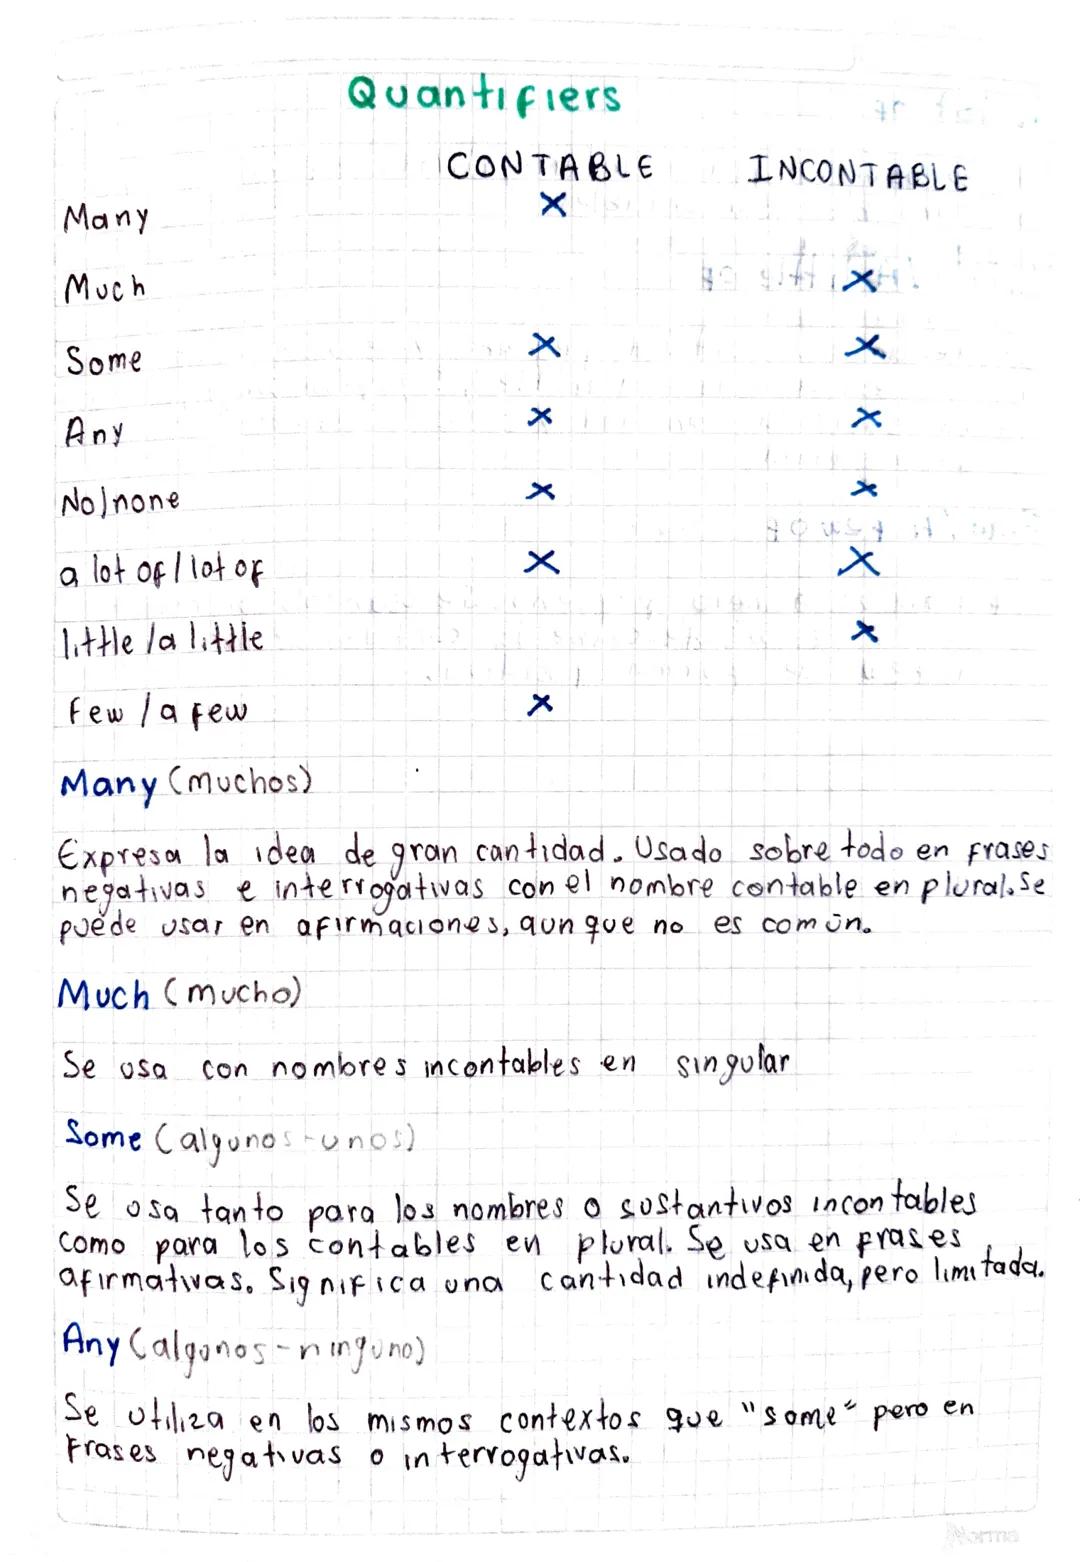 Quantifiers
CONTABLE INCONTABLE
Many X
Much X
Some X X
Any X X
No/none X X
a lot of / lot of X X
little / a little X
few / a few X
Many (muchos)
Expresa la idea de gran cantidad. Usado sobre todo en frases
negativas e interrogativas con el nombre contable en plural. Se
puede usar en afirmaciones, aunque no es común.
Much (mucho)
Se usa con nombres incontables en singular
Some (algunos-unos)
Se usa tanto para los nombres o sustantivos incontables
como para los contables en plural. Se usa en frases
afirmativas. Significa una cantidad indefinida, pero limitada.
Any (algunos-ninguno)
Se utiliza en los mismos contextos que "some" pero en
Frases negativas o interrogativas.
Norma